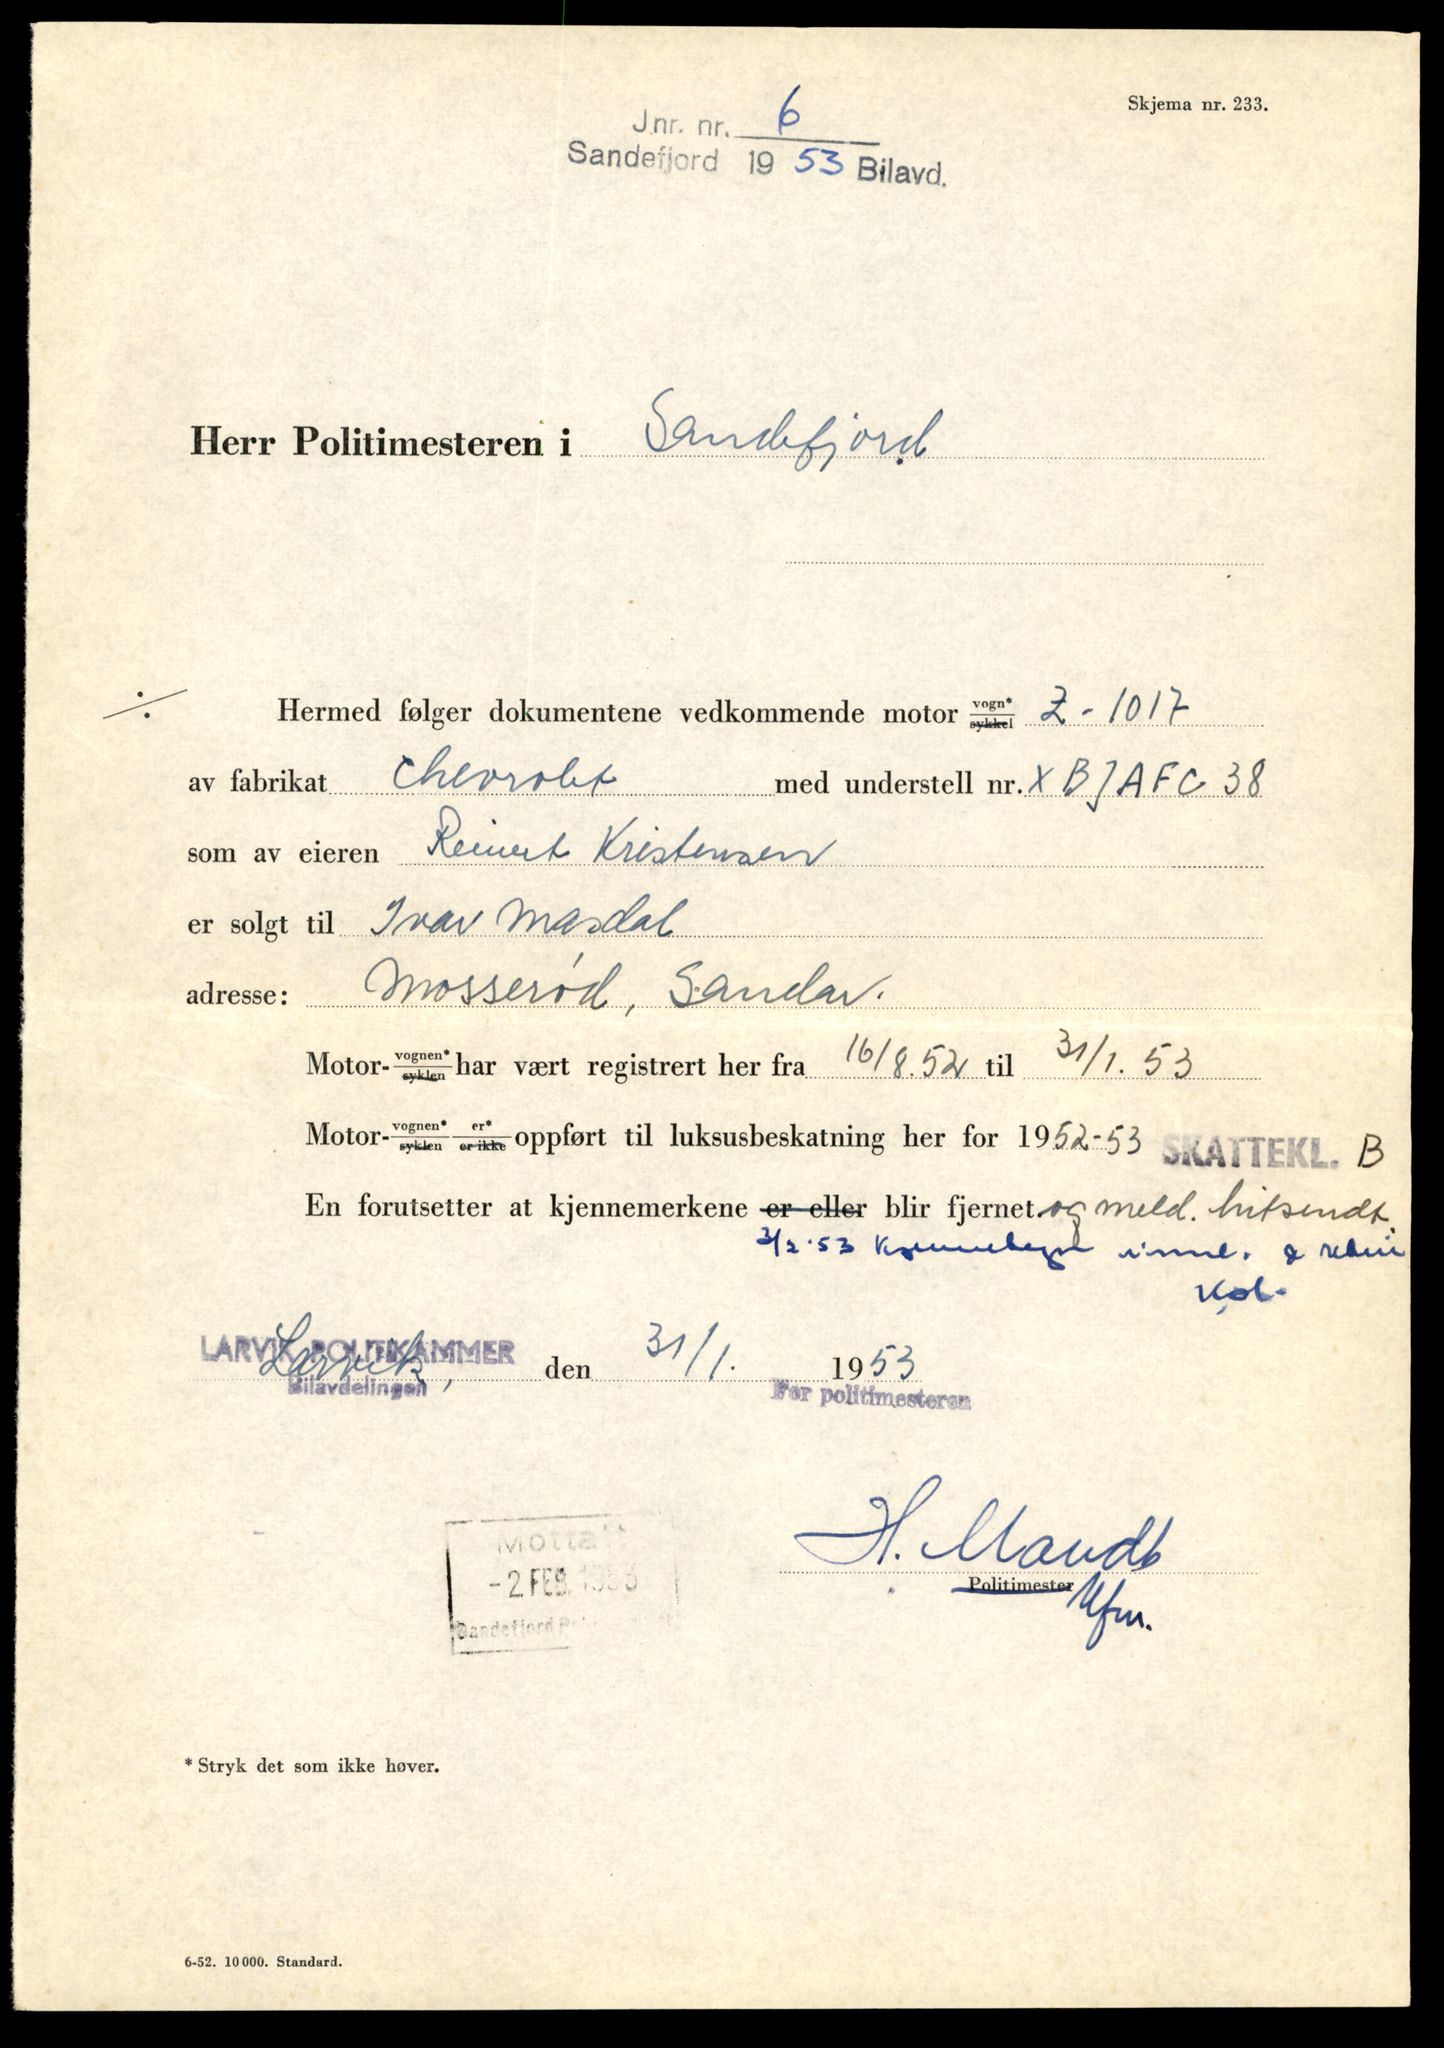 Skjema nr. 233.
Jnr. nr. 6
Sandefjord 1953 Bilavd.
Herr Politimesteren i Sandefjord
Hermed følger dokumentene vedkommende motor vogn* sykkel Z - 1017
av fabrikat Chevrolet med understell nr. X B J A F C 38
som av eieren Reinert Kristensen
er solgt til Ivar Masdal
adresse: Mosserød, Sandar.
Motor- vognen* syklen har vært registrert her fra 16/8. 52 til 31/1. 53
Motor- vognen* syklen er* er ikke oppført til luksusbeskatning her for 1952-53 SKATTEKL. B
En forutsetter at kjennemerkene er eller blir fjernet og meld. hitsendt.
3/2-53
LARVIK POLITIKAMMER
Larvik, den 31/1. 1953
Bilavdelingen
For politimesteren
H. Maudt
Politimester
Mottatt
-2. FEB. 1953
Sandefjord
* Stryk det som ikke høver.
6-52. 10 000. Standard.